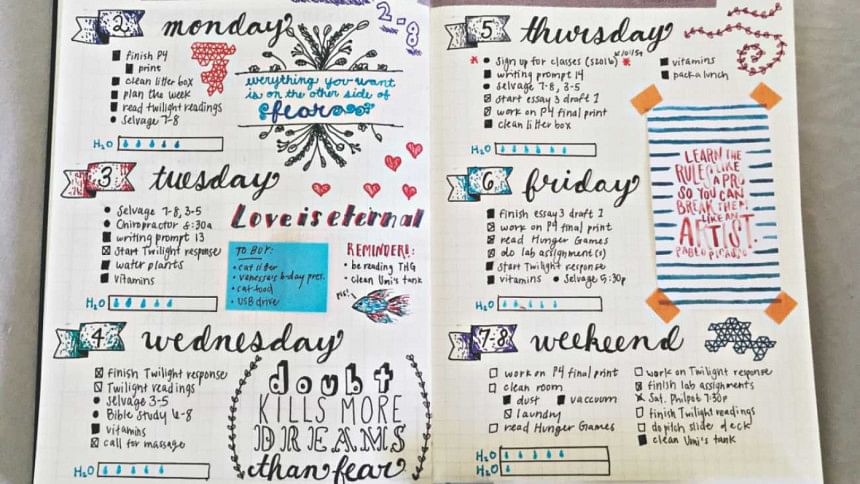 2 monday
finish P4
print
clean litter box
plan the week
read twilight readings
Selvage 7-8
H₂O
2-8
everything you want
is on the other side of
fear
3 tuesday
Selvage 7-8, 3-5
Chiropractor 8:30a
writing prompt 13
Start Twilight response
water plants
vitamins
H₂O
Love is eternal
TO BUY:
cat litter
vanessa's b-day pres.
cat food
USB drive
REMINDER!:
be reading THG
clean Umi's tank
4 wednesday
finish Twilight response
Twilight readings
Selvage 3-5
Bible Study 6-8
vitamins
call for massage
H₂O
doubt
KILLS MORE
DREAMS
than fear
5 thursday
Sign up for classes (S2016)
writing prompt 14
Selvage 7-8, 3-5
start essay 3 draft 1
work on P4 final print
clean litter box
vitamins
pack a lunch
H₂O
LEARN THE
RULES LIKE
A PRO
SO YOU CAN
BREAK THEM
LIKE AN
ARTIST.
PABLO PICASSO
6 friday
finish essay 3 draft 1
work on P4 final print
read Hunger Games
do lab assignment(s)
start Twilight response
vitamins • Selvage 5:30p
H₂O
7-8 weekeend
work on P4 final print
clean room
dust vaccuum
laundry
read Hunger Games
work on Twilight response
finish lab assignments
Sat. Philpot 7:30p
finish Twilight readings
do pitch slide deck
clean Umi's tank
H₂O
H₂O